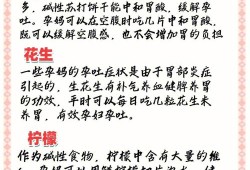 多，碱性苏打饼干能中和胃酸，缓解孕
吐。孕妈可以在空腹时吃几片中和胃酸，
既可以缓解空腹感，也不会增加胃的负担
花生
一些孕妈的孕吐症状是由于胃部炎症
引起的，生花生有补气养血健脾养胃
的功效，平时可以每日吃几粒花生米
养胃，有效孕妇孕吐。
柠檬
作为碱性食物，柠檬中含有大量的维